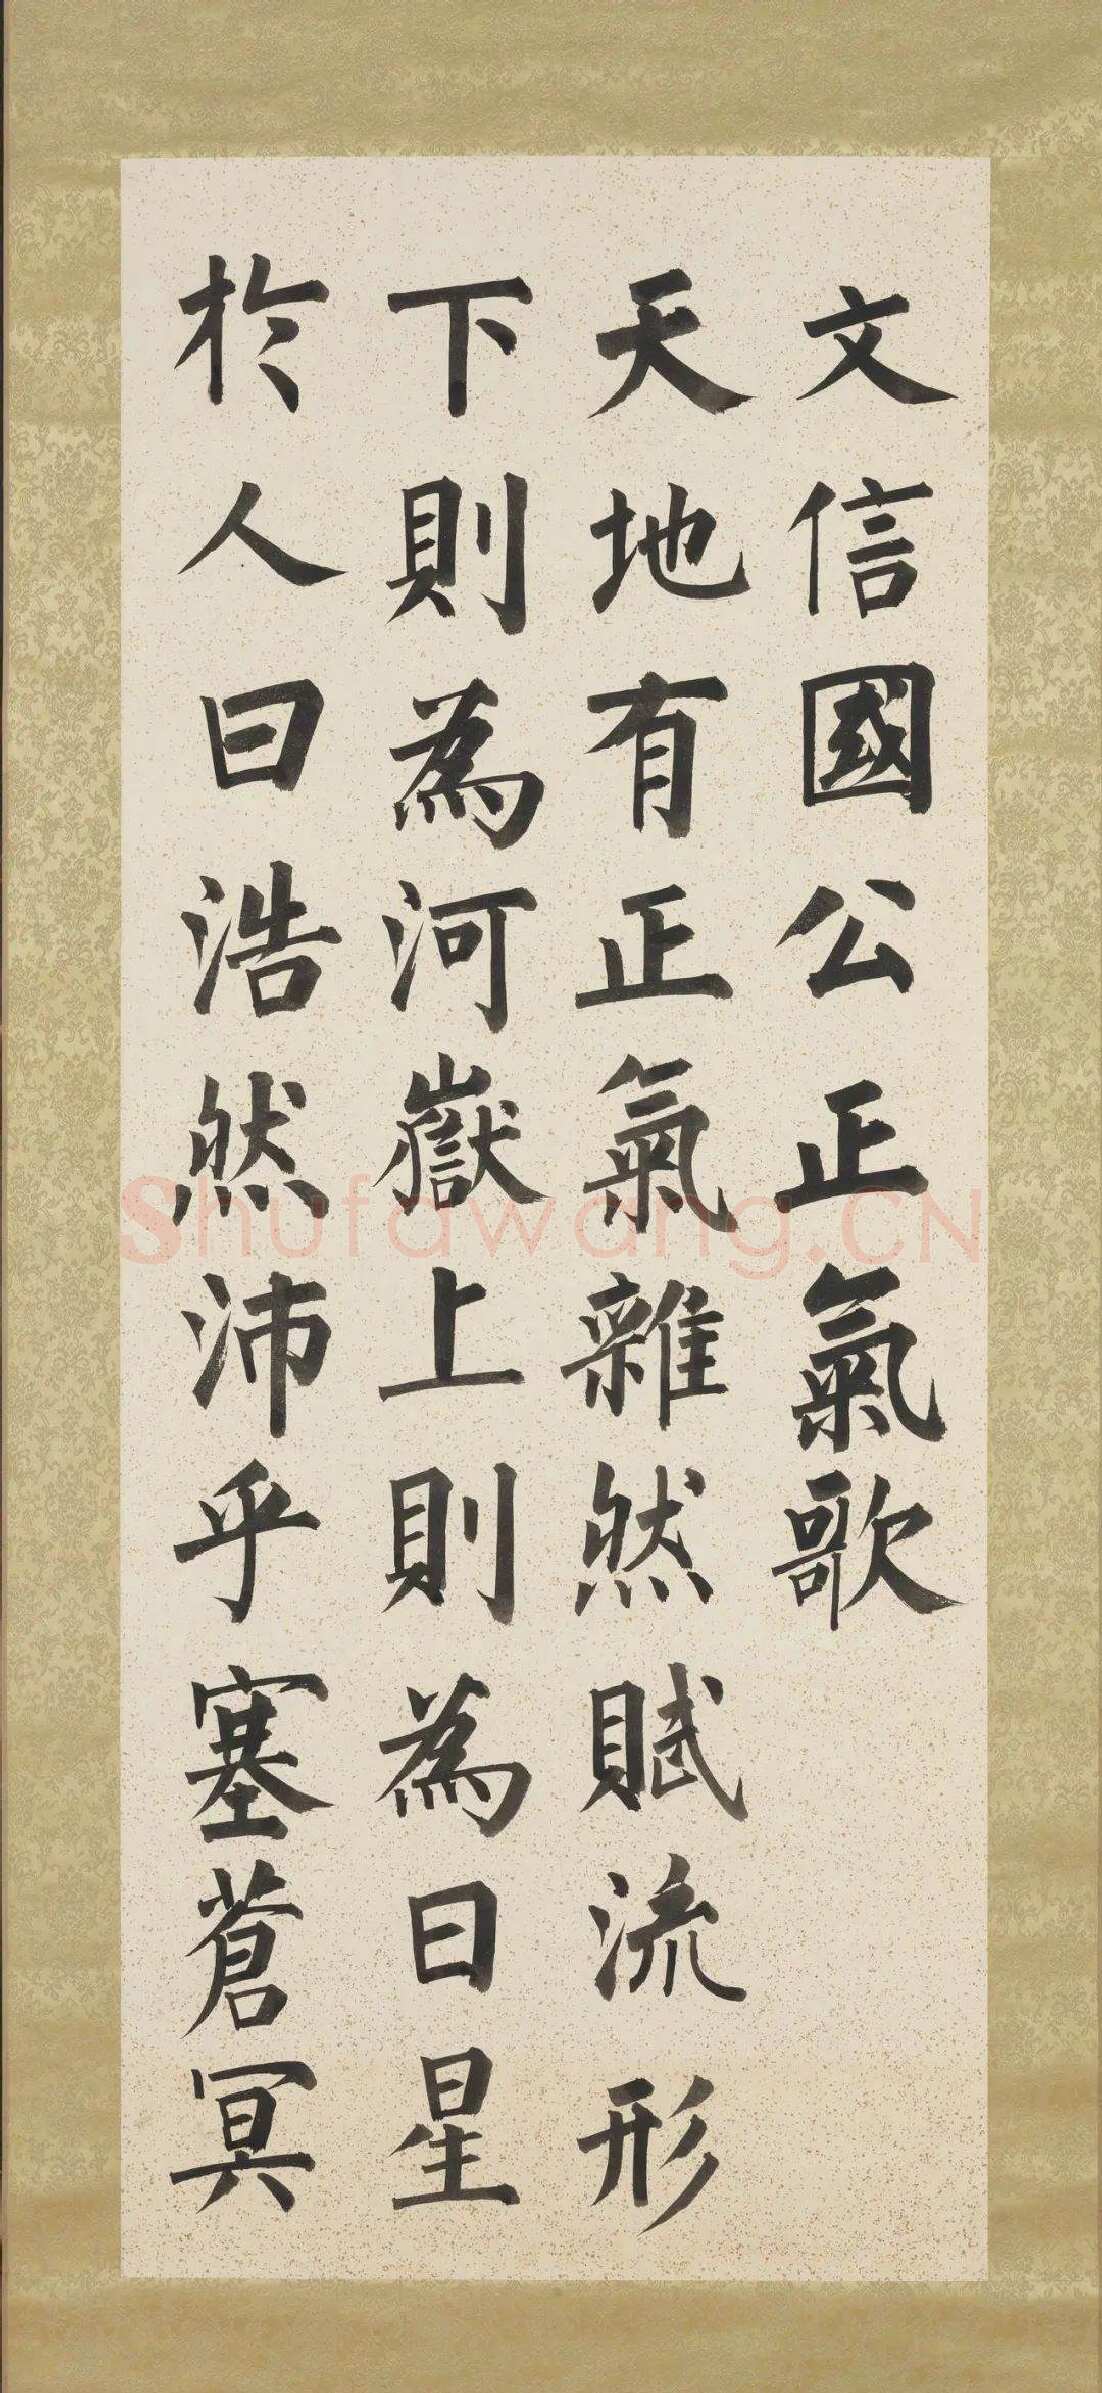 文信國公正氣歌
天地有正氣雜然賦流形
下則為河嶽上則為日星
於人曰浩然沛乎塞蒼冥
Shufawang.CN